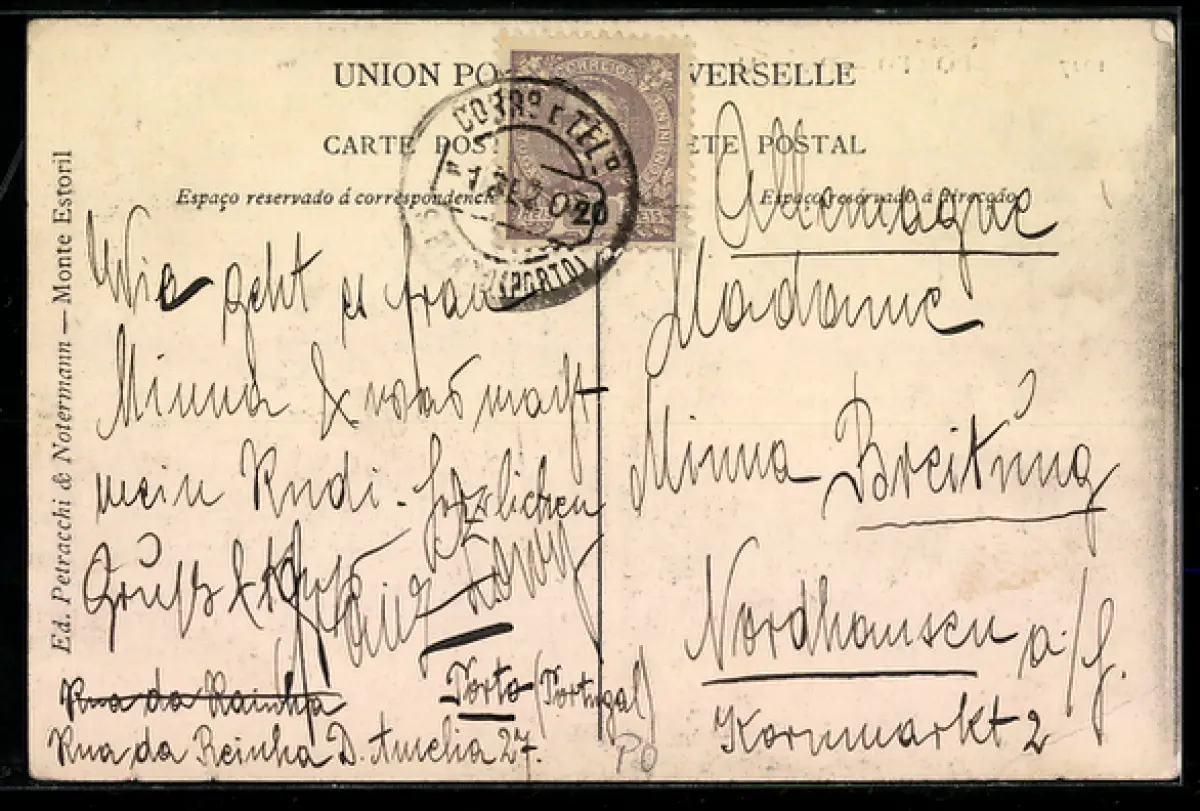 UNION PO VERSELLE
CARTE POST ETE POSTAL
Espaço reservado á correspondencia
Espaço reservado á direcção
CORREIOS
CORRO E TELO
20
(PORTO)
Ed. Petracchi & Notermann — Monte Estoril
Wie geht es Frau
Minna & was macht
mein Rudi. Herzlichen
Gruß &
Rua da Rainha
Porto (Portugal)
Rua da Reinha D. Amelia 27.
Allemagne
Madame
Minna Breitung
Nordhausen a/H.
Kornmarkt 2
PO